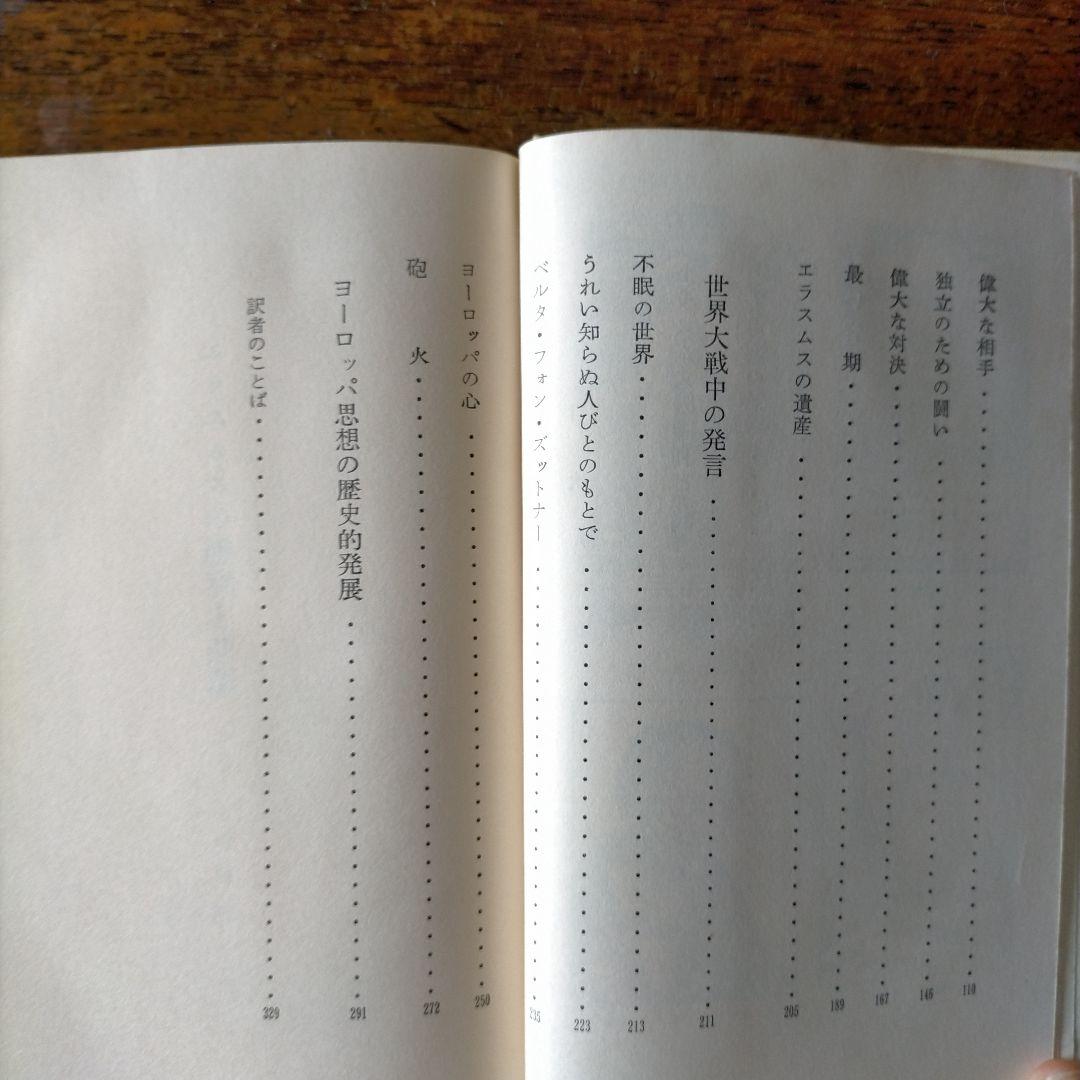 偉大な相手 110
独立のための闘い 146
偉大な対決 167
最期 189
エラスムスの遺産 205
世界大戦中の発言 211
不眠の世界 213
うれい知らぬ人びとのもとで 223
ベルタ・フォン・ズットナー 235
ヨーロッパの心 250
砲火 272
ヨーロッパ思想の歴史的発展 291
訳者のことば 329